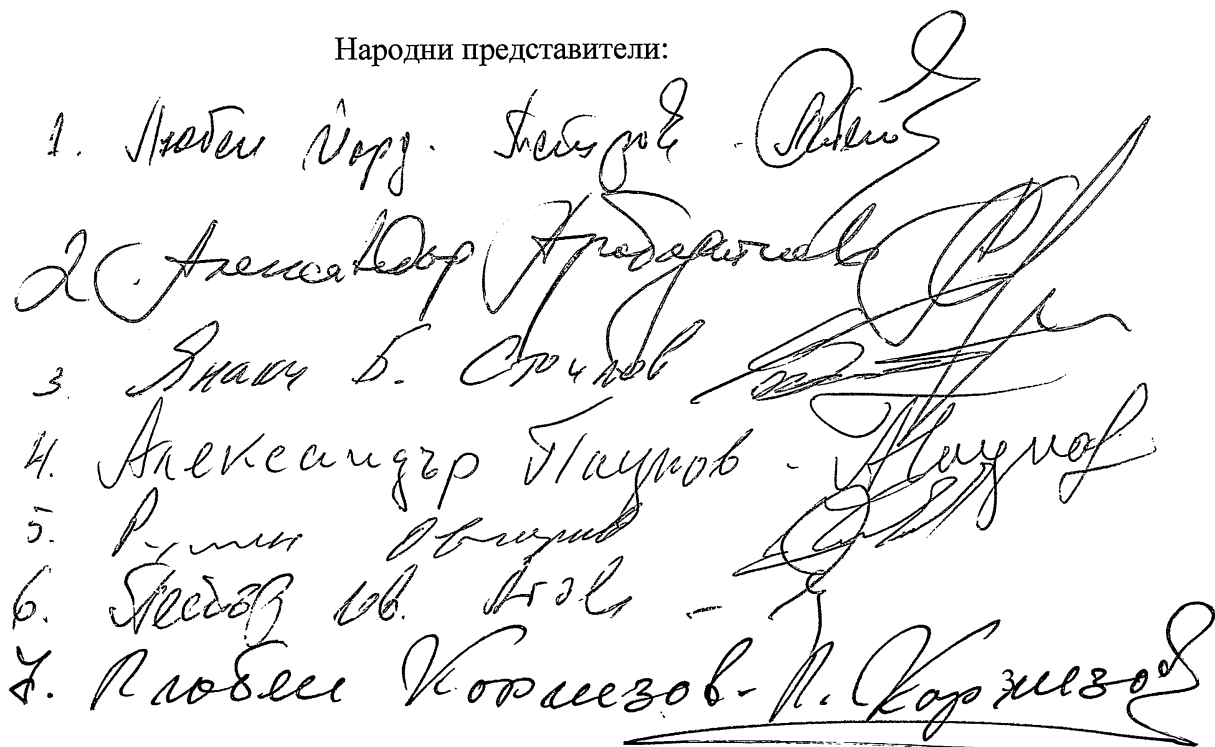 Народни представители:
1. Любен Йорд. Петров -
2. Александър
3. Янаки Б. Стоилов
4. Александър Паунов - АПаунов
5. Румен Овчаров
6. Петър -
7. Любен Корнезов - Л. Корнезов